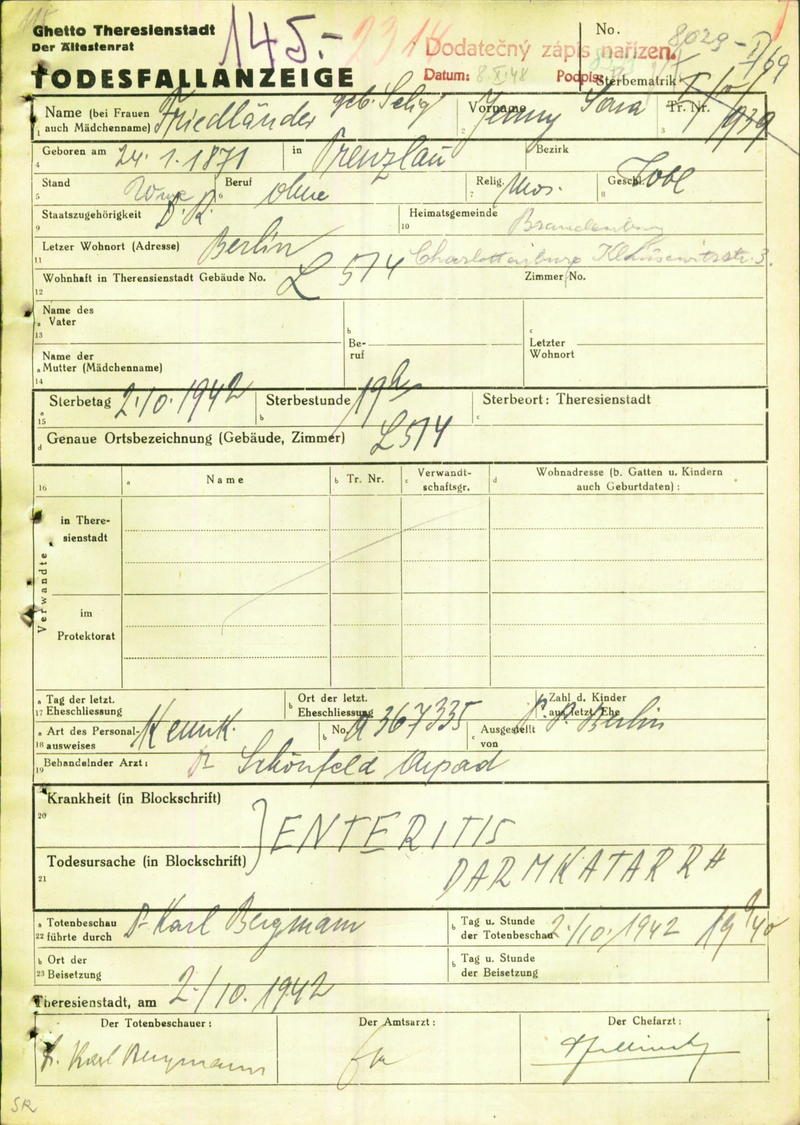 Ghetto Theresienstadt
Der Ältestenrat
TODESFALLANZEIGE
145.-
2314
Dodatečný zápis nařízen.
Datum: 8.XI.48 Podpis
No. 8029
Sterbematrik
Name (bei Frauen auch Mädchenname) Friedländer geb. Selig
1
Vorname Jenny Sara
2
Tr. Nr.
3
Geboren am 24. 1. 1871 in Prenzlau Bezirk
4
Stand Beruf ohne Relig. Mos. Geschl.
5 6 7 8
Staatszugehörigkeit D. R. Heimatsgemeinde Brandenburg
9 10
Letzer Wohnort (Adresse) Berlin Charlottenburg
11
Wohnhaft in Theresienstadt Gebäude No. L 514 Zimmer No.
12
a Name des Vater
13
b Be-ruf
c Letzter Wohnort
a Name der Mutter (Mädchenname)
14
a Sterbetag 2.10.1942 b Sterbestunde 19h c Sterbeort: Theresienstadt
15
d Genaue Ortsbezeichnung (Gebäude, Zimmer) L 514
16 a Name b Tr. Nr. c Verwandt-schaftsgr. d Wohnadresse (b. Gatten u. Kindern auch Geburtdaten) :
Verwandte
in There-sienstadt
im Protektorat
a Tag der letzt. Eheschliessung b Ort der letzt. Eheschliessung c Zahl d. Kinder aus letzt. Ehe
17
a Art des Personal-ausweises Kennk. b No. A 367335 c Ausgestellt von P. P. Berlin
18
Behandelnder Arzt: Dr Schönfeld Arpad
19
Krankheit (in Blockschrift)
20
ENTERITIS
Todesursache (in Blockschrift)
21
DARMKATARRH
a Totenbeschau führte durch Dr Karl Bergmann b Tag u. Stunde der Totenbeschau 2./10. 1942 19h40
22
b Ort der Beisetzung b Tag u. Stunde der Beisetzung
23
Theresienstadt, am 2./10. 1942
Der Totenbeschauer : Der Amtsarzt : Der Chefarzt :
Dr. Karl Bergmann
SR